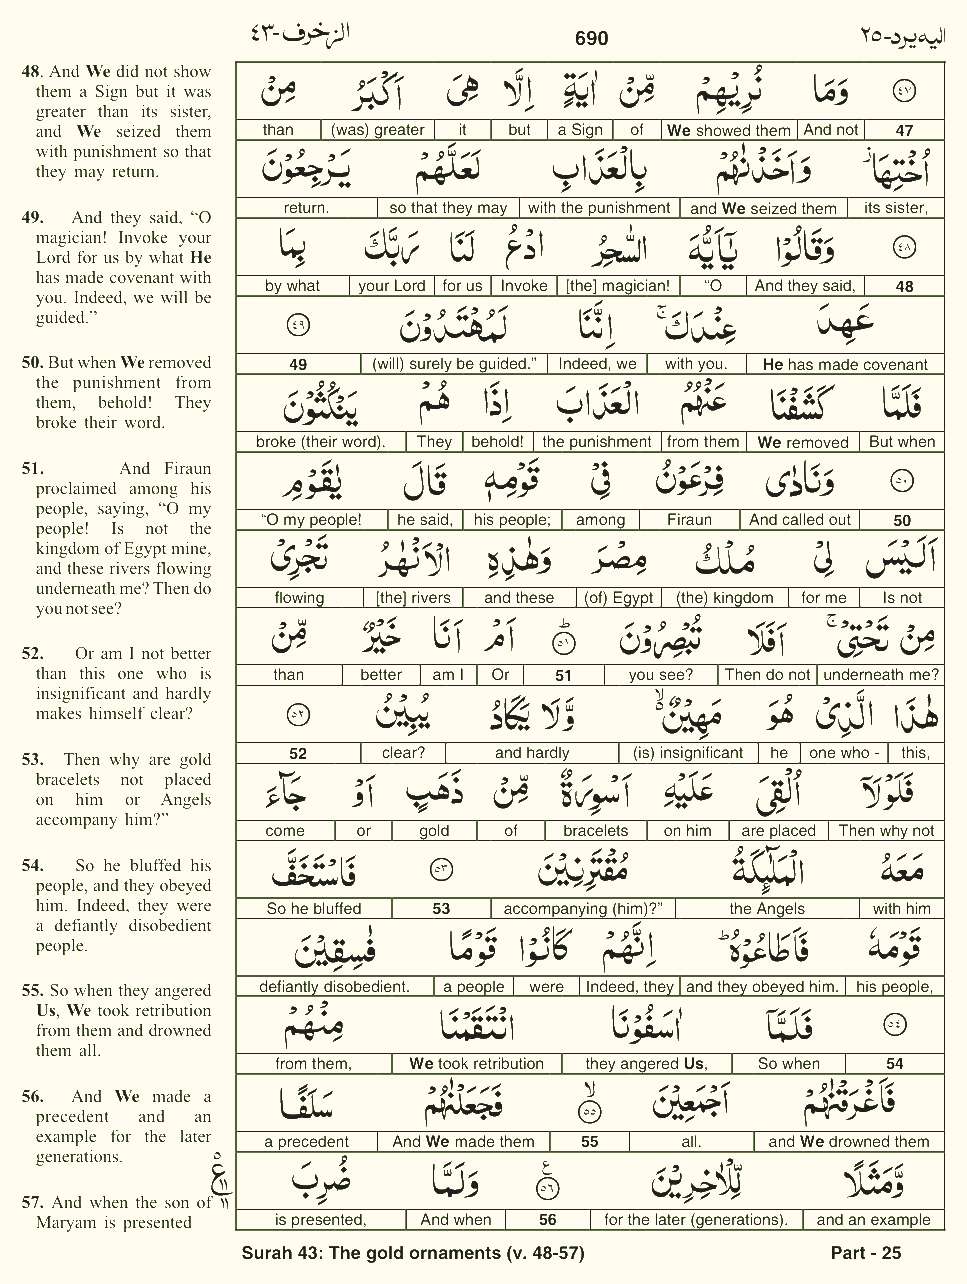 الزخرف-٤٣ 690 اليه يرد-٢٥
48. And We did not show
them a Sign but it was
greater than its sister,
and We seized them
with punishment so that
they may return.
49. And they said, “O
magician! Invoke your
Lord for us by what He
has made covenant with
you. Indeed, we will be
guided.”
50. But when We removed
the punishment from
them, behold! They
broke their word.
51. And Firaun
proclaimed among his
people, saying, “O my
people! Is not the
kingdom of Egypt mine,
and these rivers flowing
underneath me? Then do
you not see?
52. Or am I not better
than this one who is
insignificant and hardly
makes himself clear?
53. Then why are gold
bracelets not placed
on him or Angels
accompany him?”
54. So he bluffed his
people, and they obeyed
him. Indeed, they were
a defiantly disobedient
people.
55. So when they angered
Us, We took retribution
from them and drowned
them all.
56. And We made a
precedent and an
example for the later
generations.
57. And when the son of
Maryam is presented
٤٧ وَمَا نُرِيْهِمْ مِّنْ اٰيَةٍ اِلَّا هِىَ اَكْبَرُ مِنْ
than (was) greater it but a Sign of We showed them And not 47
اُخْتِهَا ۡ وَاَخَذْنٰهُمْ بِالْعَذَابِ لَعَلَّهُمْ يَرْجِعُوْنَ
return. so that they may with the punishment and We seized them its sister,
٤٨ وَقَالُوْا يٰۤاَيُّهَ السّٰحِرُ ادْعُ لَنَا رَبَّكَ بِمَا
by what your Lord for us Invoke [the] magician! “O And they said, 48
عَهِدَ عِنْدَكَ ۚ اِنَّنَا لَمُهْتَدُوْنَ ٤٩
49 (will) surely be guided.” Indeed, we with you. He has made covenant
فَلَمَّا كَشَفْنَا عَنْهُمُ الْعَذَابَ اِذَا هُمْ يَنْكُثُوْنَ
broke (their word). They behold! the punishment from them We removed But when
٥٠ وَنَادٰى فِرْعَوْنُ فِىْ قَوْمِهٖ قَالَ يٰقَوْمِ
“O my people! he said, his people; among Firaun And called out 50
اَلَيْسَ لِىْ مُلْكُ مِصْرَ وَهٰذِهِ الْاَنْهٰرُ تَجْرِىْ
flowing [the] rivers and these (of) Egypt (the) kingdom for me Is not
مِنْ تَحْتِىْ ۚ اَفَلَا تُبْصِرُوْنَ ؕ ٥١ اَمْ اَنَا خَيْرٌ مِّنْ
than better am I Or 51 you see? Then do not underneath me?
هٰذَا الَّذِىْ هُوَ مَهِيْنٌ ۙ وَّلَا يَكَادُ يُبِيْنُ ٥٢
52 clear? and hardly (is) insignificant he one who - this,
فَلَوْلَاۤ اُلْقِىَ عَلَيْهِ اَسْوِرَةٌ مِّنْ ذَهَبٍ اَوْ جَآءَ
come or gold of bracelets on him are placed Then why not
مَعَهُ الْمَلٰٓئِكَةُ مُقْتَرِنِيْنَ ٥٣ فَاسْتَخَفَّ
So he bluffed 53 accompanying (him)?” the Angels with him
قَوْمَهٗ فَاَطَاعُوْهُ ؕ اِنَّهُمْ كَانُوْا قَوْمًا فٰسِقِيْنَ
defiantly disobedient. a people were Indeed, they and they obeyed him. his people,
٥٤ فَلَمَّاۤ اٰسَفُوْنَا انْتَقَمْنَا مِنْهُمْ
from them, We took retribution they angered Us, So when 54
فَاَغْرَقْنٰهُمْ اَجْمَعِيْنَ ۙ ٥٥ فَجَعَلْنٰهُمْ سَلَفًا
a precedent And We made them 55 all. and We drowned them
وَّمَثَلًا لِّلْاٰخِرِيْنَ ٥٦ ع وَلَمَّا ضُرِبَ
is presented, And when 56 for the later (generations). and an example
٥ ع ١١ ١١
Surah 43: The gold ornaments (v. 48-57) Part - 25